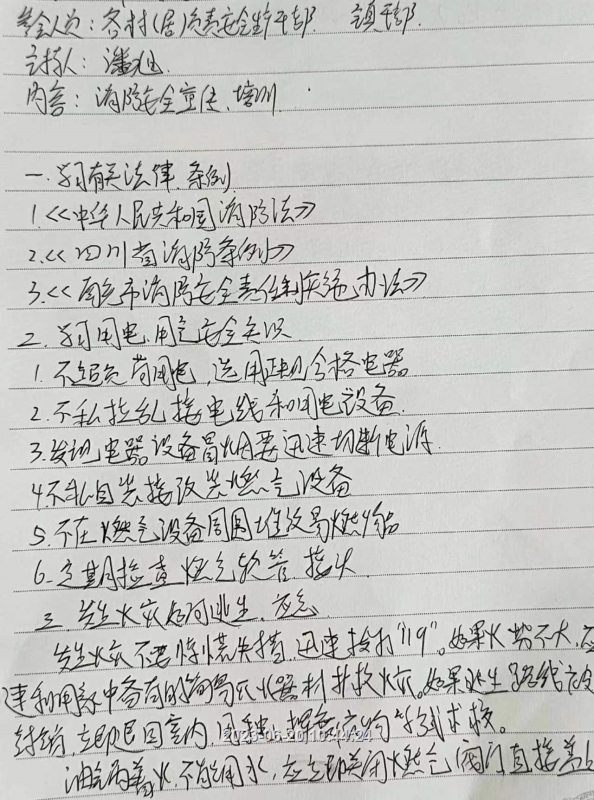 参会人员：各村(居)负责安全生产干部 镇干部
主持人：潘旭
内容：消防安全宣传、培训.
一.学习有关法律.条例
1.《中华人民共和国消防法》
2.《四川省消防条例》
3.《南充市消防安全责任制实施办法》
二.学习用电.用气安全知识
1.不超负荷用电,选用正规合格电器
2.不私拉乱接电线和用电设备.
3.发现电器设备冒烟要迅速切断电源.
4.不私自安接改装燃气设备
5.不在燃气设备周围堆放易燃物品
6.定期检查燃气软管.接头.
三.发生火灾如何逃生.应急
发生火灾不要惊慌失措.迅速拨打"119"。如果火势不大,应
速利用家中备有的简易灭火器材扑救火灾。如果逃生路线被
封锁,立即退回室内,用 求救。
2023-06-20 10:44:24
油锅着火.不能用水,应立即关闭燃气阀门直接盖上